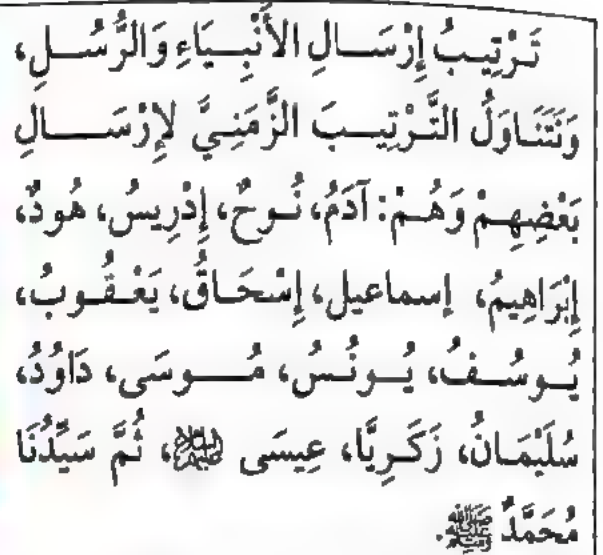 تَرْتِيبُ إِرْسَالِ الأَنْبِيَاءِ وَالرُّسُلِ،
وَنَتَنَاوَلُ التَّرْتِيبَ الزَّمَنِيَّ لإِرْسَالِ
بَعْضِهِمْ وَهُمْ: آدَمُ، نُوحٌ، إِدْرِيسُ، هُودٌ،
إِبْرَاهِيمُ، إسماعيل، إِسْحَاقُ، يَعْقُوبُ،
يُوسُفُ، يُونُسُ، مُوسَى، دَاوُدُ،
سُلَيْمَانُ، زَكَرِيَّا، عِيسَى ﷺ، ثُمَّ سَيِّدُنَا
مُحَمَّدٌ ﷺ.